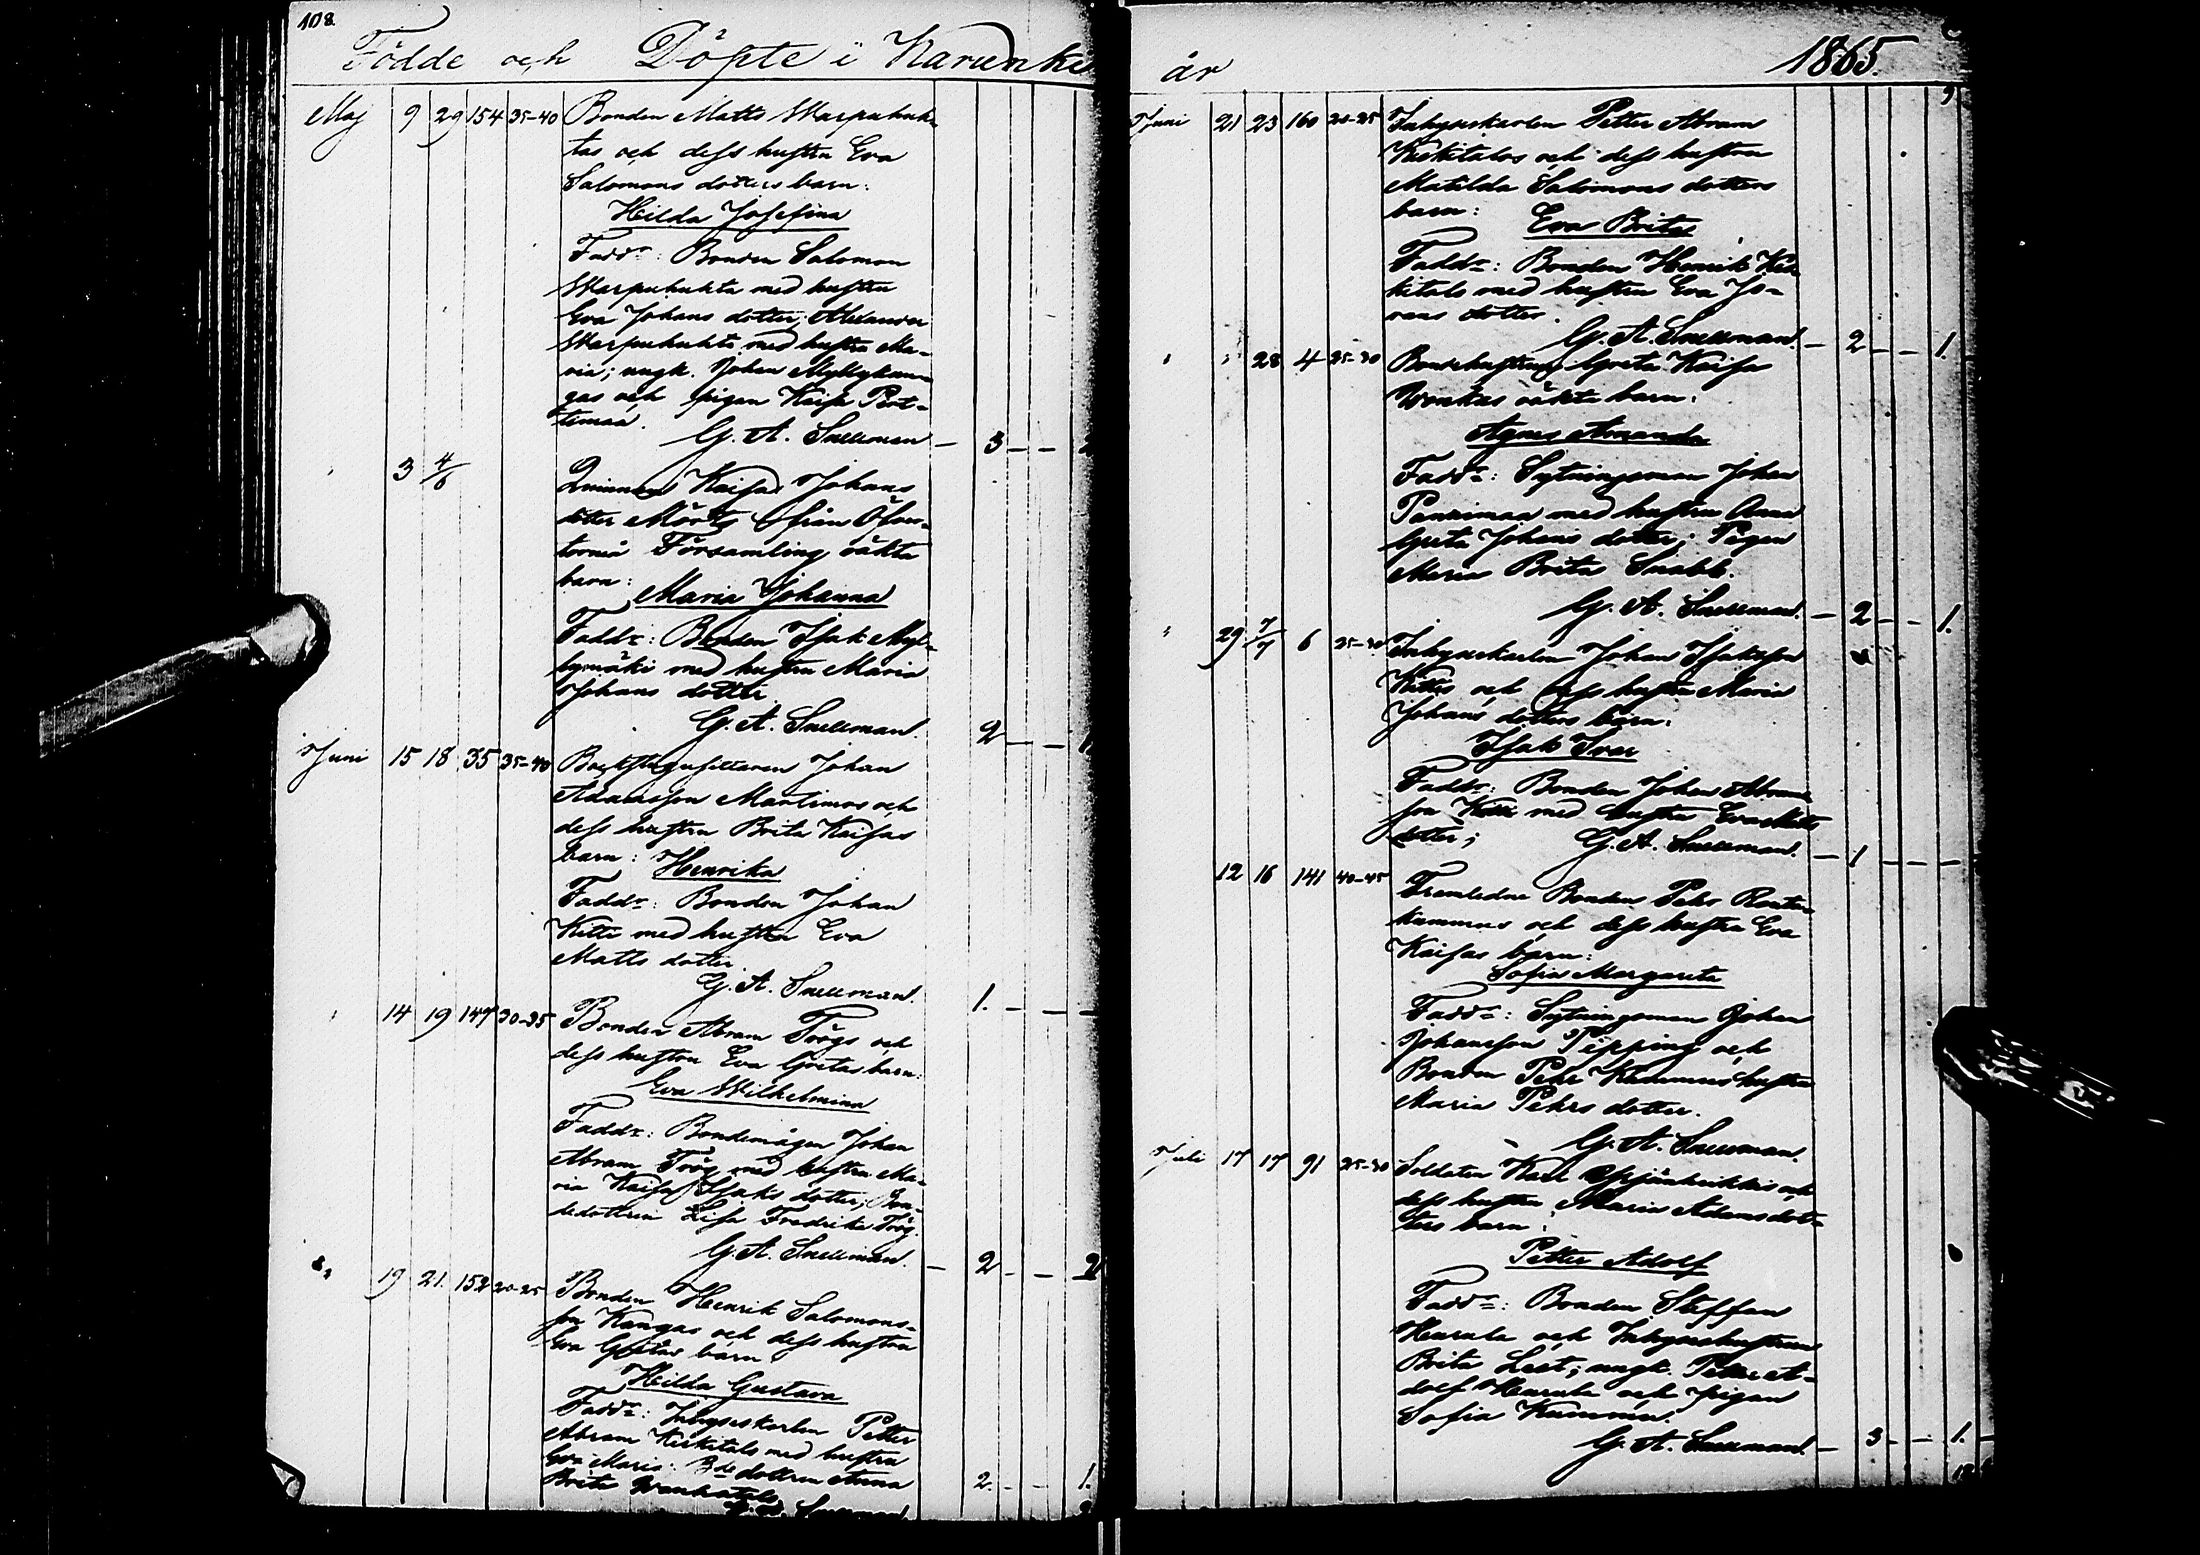 108.
Födde och Döpte i Karunki
Maj 9 29 154 35-40 Bonden Matts Karpuhuh-
tas och dess hustru Eva
Salomons dotters barn:
Hilda Josefina
Faddr: Bonden Salomon
Karpuhuhta med hustru
Eva Johans dotter; Alexander
Karpuhuhta med hustru Ma-
ria; ungk. Johan Myllykan-
gas och pigan Kaisa Pert-
timaa.
G. A. Snellman - 3 - - 2
" 3 4/6 Qvinnans Kaisa Johans
dotter Mörtz från Öfver-
torneå Församling oäkta
barn:
Maria Johanna
Faddr: Bonden Isak Myl-
lymäki med hustru Maria
Johans dotter
G. A. Snellman. 2 - - 1
Juni 15 18 35 35-40 Backstugusittaren Johan
Adamsson Martimos och
dess hustru Brita Kaisas
barn: Henrika
Faddr: Bonden Johan
Kitti med hustru Eva
Matts dotter
G. A. Snellman. 1. - - -
" 14 19 147 30-35 Bonden Abram Töögs och
dess hustru Eva Gretas barn:
Eva Wilhelmina
Faddr: Bondemågen Johan
Abram Töög med hustru Ma-
ria Kaisa Isaks dotter; Bon-
dedottren Lisa Fredrika Töög.
G. A. Snellman. - 2 - - 2
19 21. 152 20-25 Bonden Henrik Salomons-
son Kangas och dess hustru
Eva Gretas barn
Hilda Gustava
Faddr: Inhyseskarlen Petter
Abram Keskitalo med hustru
Eva Maria: Bde dottren Anna
Brita Wanhatalo 2. - - 1.
G. A. Snellman
år 1865.
Juni 21 23 160 20-25 Inhyseskarlen Petter Abram
Keskitalos och dess hustru
Matilda Salomons dotters
barn:
Eva Brita
Faddr: Bonden Henrik Kes-
kitalo med hustru Eva Jo-
hans dotter.
G. A. Snellman. - 2 - - 1.
" " 28 4 25-30 Bondehustrun Greta Kaisa
oäkta barn:
Agnes Amanda
Faddr: Sytningsman Johan
Pannimaa med hustru Anna
Greta Johans dotter; Pigan
Maria Brita Snabb.
G. A. Snellman. - 2 - - 1.
" 29 7/7 6 25-30 Inhyseskarlen Johan Isaksson
Kittis och dess hustru Maria
Johans dotters barn:
Isak Ivar
Faddr: Bonden Johan Abrams-
son Kitti med hustru Eva Matts
dotter;
G. A. Snellman. - 1 - - -
12 16 141 40-45 Framledne Bonden Pehr
Kummus och dess hustru Eva
Kaisas barn:
Sofia Margareta
Faddr: Sytningsman Johan
Johansson Pipping och
Bonden Pehr Kummus hustru
Maria Pehrs dotter.
G. A. Snellman.
Juli 17 17 91 25-30 Soldaten Karl och
dess hustru Maria Adams dot-
ters barn:
Petter Adolf
Faddr: Bonden Steffan
Heurula och Inhyseshustrun
Brita Leet; ungk. Petter A-
dolf Heurula och pigan
Sofia Kummu.
G. A. Snellman. - 3 - - 1.